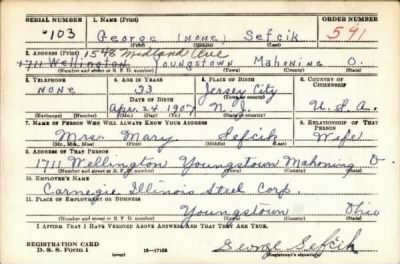 SERIAL NUMBER 1. NAME (Print) ORDER NUMBER
103 George (NONE) Sefcik 591
(First) (Middle) (Last)
2. ADDRESS (Print) 1548 Midland Ave
1711 Wellington Youngstown Mahoning O.
(Number and street or R. F. D. number) (Town) (County) (State)
3. TELEPHONE 4. AGE IN YEARS 5. PLACE OF BIRTH 6. COUNTRY OF CITIZENSHIP
NONE 33 Jersey City
DATE OF BIRTH (Town or county)
Apr. 24 1907 N. J. U.S.A.
(Mo.) (Day) (Yr.) (State or country)
7. NAME OF PERSON WHO WILL ALWAYS KNOW YOUR ADDRESS 8. RELATIONSHIP OF THAT PERSON
Mrs. Mary Sefcik Wife
(Mr., Mrs., Miss) (First) (Middle) (Last)
9. ADDRESS OF THAT PERSON
1711 Wellington Youngstown Mahoning O
(Number and street or R. F. D. number) (Town) (County) (State)
10. EMPLOYER'S NAME
Carnegie Illinois Steel Corp.
11. PLACE OF EMPLOYMENT OR BUSINESS
Youngstown Ohio
(Number and street or R. F. D. number) (Town) (County) (State)
I AFFIRM THAT I HAVE VERIFIED ABOVE ANSWERS AND THAT THEY ARE TRUE.
REGISTRATION CARD George Sefcik
D. S. S. Form 1 (over) (Registrant's signature)